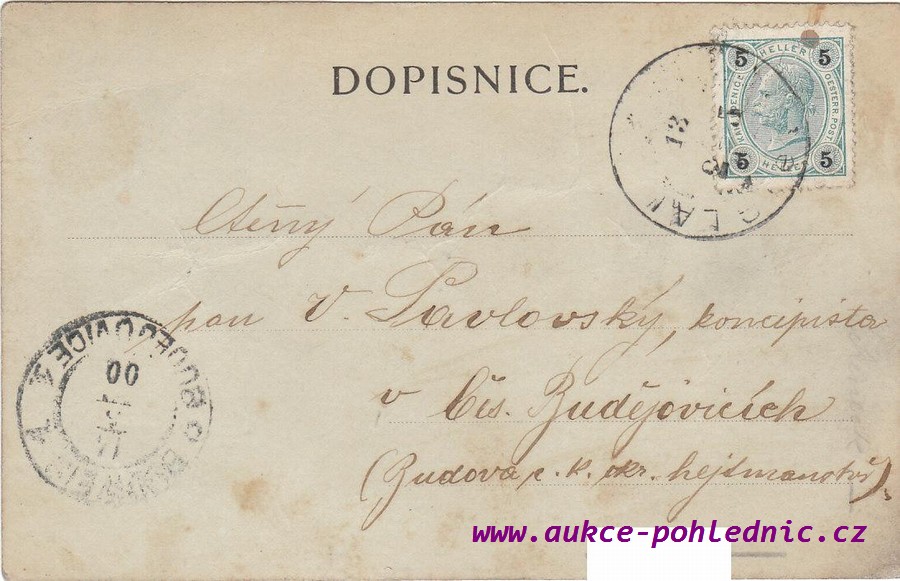 DOPISNICE.
5 HELLER 5
5 HELLER 5
13
Ctěný Pán
pan V. Pavlovský, koncipista
v Čís. Budějovicích
(Budova c. k. okr. hejtmanství).
BUDĚJOVICE
00
www.aukce-pohlednic.cz